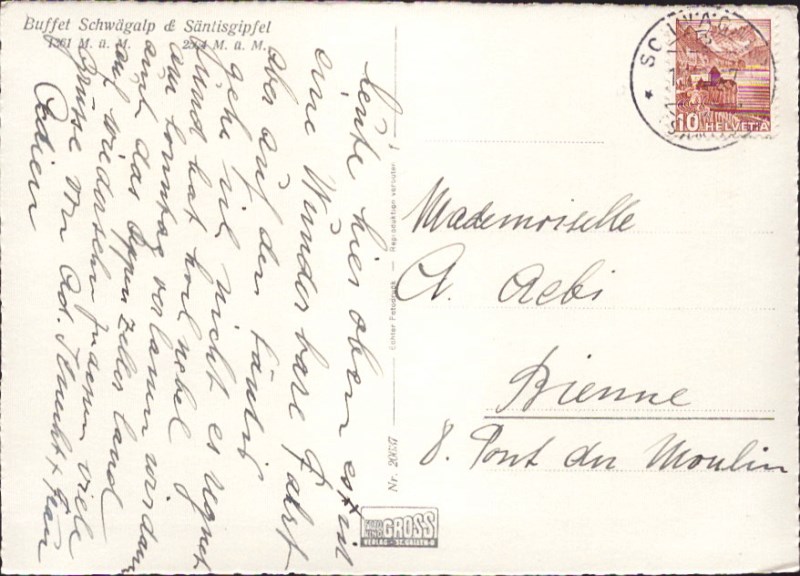 Buffet Schwägalp & Säntisgipfel
1361 M. ü. M. 2504 M. ü. M.
heute hier oben es ist
eine Wunderbare fahrt
aber auf den Säntis
gehe ich nicht es regnet
und hat vol nebel
am Sonntag verlassen wir dann
das Appenzellerland
auf wiedersehn
Grüsse von Ad. Knecht + Frau
Adieu
Nr. 2067
Echter Fotodruck — Reproduktion verboten
FOTO
GROSS
VERLAG - ST.GALLEN-O
SCHWÄG
10 HELVETIA
Mademoiselle
A. Aebi
Bienne
8. Pont du Moulin